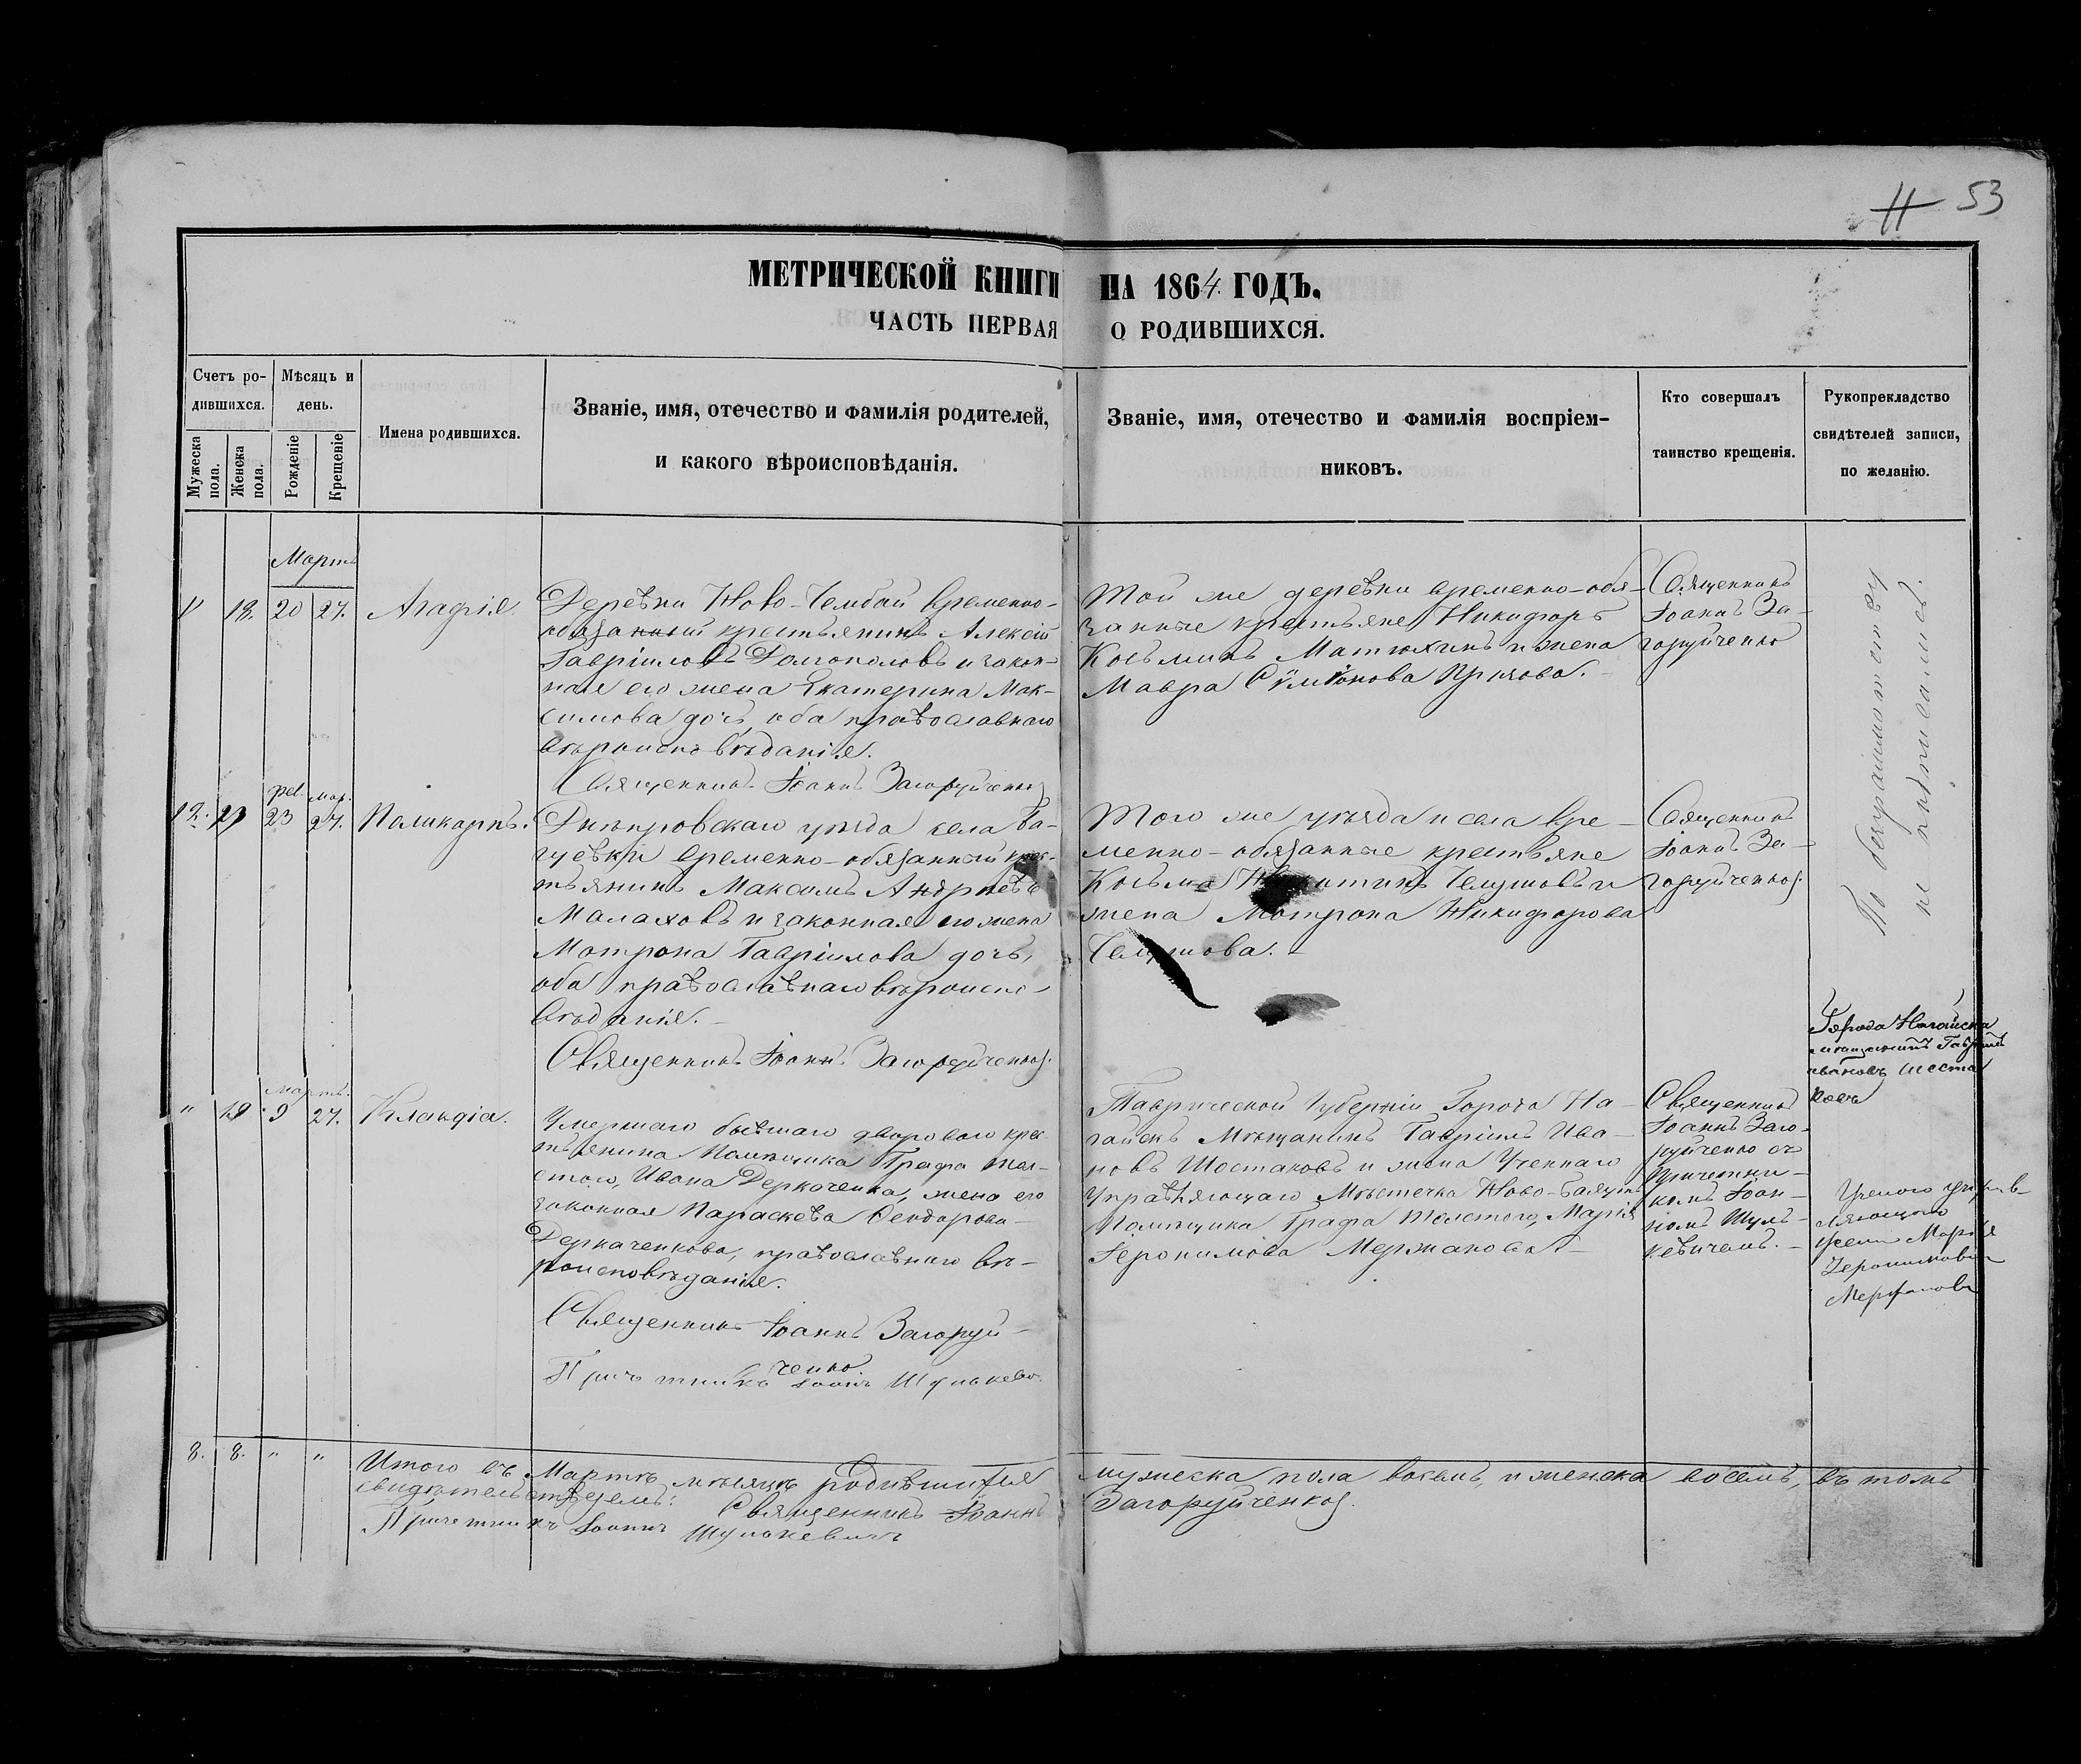 # 53
МЕТРИЧЕСКОЙ КНИГИ НА 1864 ГОДЪ.
ЧАСТЬ ПЕРВАЯ О РОДИВШИХСЯ.
Счетъ ро-
дившихся.
Мужеска пола.
Женска пола.
Мѣсяцъ и
день.
Рожденіе
Крещеніе
Имена родившихся.
Званіе, имя, отечество и фамилія родителей,
и какого вѣроисповѣданія.
Званіе, имя, отечество и фамилія воспріем-
никовъ.
Кто совершалъ
таинство крещенія.
Рукоприкладство
свидѣтелей записи,
по желанію.
Мартъ
18. 20 27. Агафія.
Деревни Ново-Чембай временно-
обязанный крестьянинъ Алексій
Гавріиловъ Долгополовъ и закон-
ная его жена Екатерина Мак-
симова дочь, оба православнаго
вѣроисповѣданія.
Священникъ Іоаннъ Загоруйченко
Той же деревни временно-обя-
занные крестьяне Никифоръ
Косьминъ Матюхинъ и жена
Мавра Сѵмеонова
Священникъ
Іоаннъ За-
горуйченко
По безграмотству
не подписались.
12. Фев. 23 Мар. 27. Поликарпъ.
Днѣпровскаго уѣзда села
временно-обязанный крес-
тьянинъ Максимъ Андреевъ
Малаховъ и законная его жена
Матрона Гавріилова дочь,
оба православнаго вѣроиспо-
вѣданія.
Священникъ Іоаннъ Загоруйченко.
Того же уѣзда и села вре-
менно-обязанные крестьяне
Косьма и
жена Матрона Никифорова
Священникъ
Іоаннъ За-
горуйченко.
Мартъ.
" 19 9 27. Клавдіа.
Умершаго бывшаго двороваго крес-
тьянина Помѣщика Графа Тол-
стого, Ивана Деркаченка, жена его
законная Параскева Феодорова
Деркаченкова, православнаго вѣ-
роисповѣданія.
Священникъ Іоаннъ Загоруй-
ченко
Причетникъ Іоаннъ Шулькеви
Таврической Губерніи Города На-
гайскъ Мѣщанинъ Гавріилъ Ива-
новъ Шостаковъ и жена Ученнаго
Управляющаго Мѣстечка Ново-
Помѣщика Графа Толстого, Марія
Іеронимова Мержанова
Священникъ
Іоаннъ Заго-
руйченко съ
Причетни-
комъ Іоан-
номъ Шуль-
кевичемъ.
Города Нагайска
мѣщанинъ Гавріилъ
Ивановъ Шеста
ковъ
Ученого управ-
ляющого
жена Марія
Иеронимовна
Мержанова
8. 8. " "
Итого въ Мартѣ мѣсяцѣ родившихся мужеска пола восемь, и женска восемь, въ томъ
свидѣтельствуемъ: Священникъ Іоаннъ Загоруйченко.
Причетникъ Іоаннъ Шулькевичъ